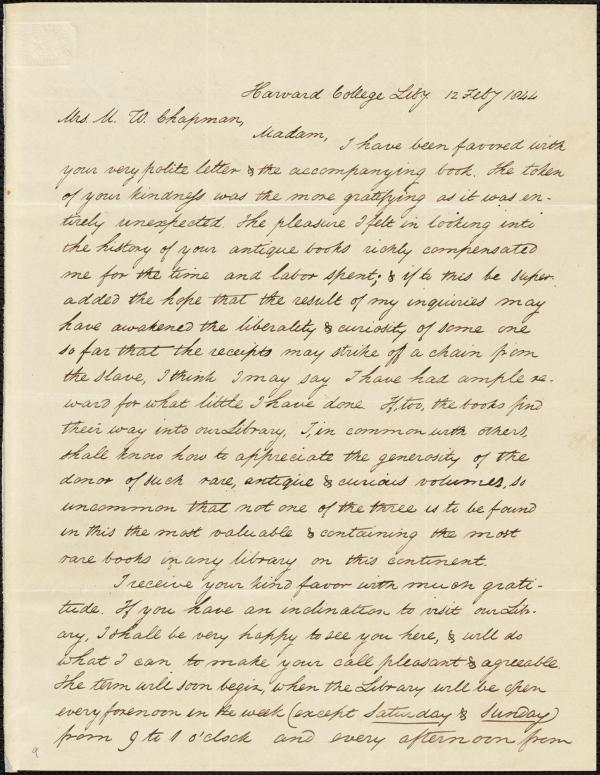 Harvard College Liby. 12 Feby 1844
Mrs. M. W. Chapman,
Madam,
I have been favored with
your very polite letter & the accompanying book. The token
of your kindness was the more gratifying as it was en-
tirely unexpected. The pleasure I felt in looking into
the history of your antique books richly compensated
me for the time and labor spent; & if to this be super-
added the hope that the result of my inquiries may
have awakened the liberality & curiosity of some one
so far that the receipts may strike off a chain from
the slave, I think I may say I have had ample re-
ward for what little I have done. If, too, the books find
their way into our Library, I, in common with others,
shall know how to appreciate the generosity of the
donor of such rare, antique & curious volumes, so
uncommon that not one of the three is to be found
in this the most valuable & containing the most
rare books in any library on this continent.
I receive your kind favor with much grati-
tude. If you have an inclination to visit our Lib-
ary, I shall be very happy to see you here, & will do
what I can to make your call pleasant & agreeable.
The term will soon begin, when the Library will be open
every forenoon in the week (except Saturday & Sunday)
from 9 to 1 o'clock and every afternoon from
9